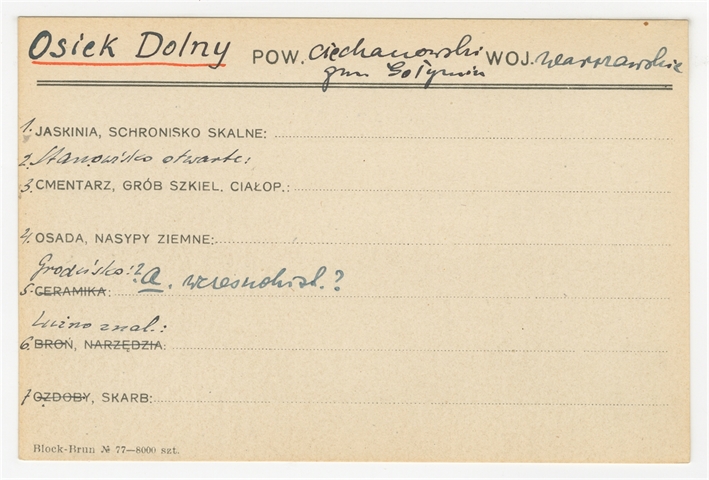 Osiek Dolny POW. ciechanowski WOJ. warszawskie
gm Gołymin
1. JASKINIA, SCHRONISKO SKALNE:
2. Stanowisko otwarte:
3. CMENTARZ, GRÓB SZKIEL. CIAŁOP.:
4. OSADA, NASYPY ZIEMNE:
Grodzisko: ? a. wczesnohist.?
5. CERAMIKA:
Luźno znal.:
6. BROŃ, NARZĘDZIA:
7 OZDOBY, SKARB:
Block-Brun № 77—8000 szt.